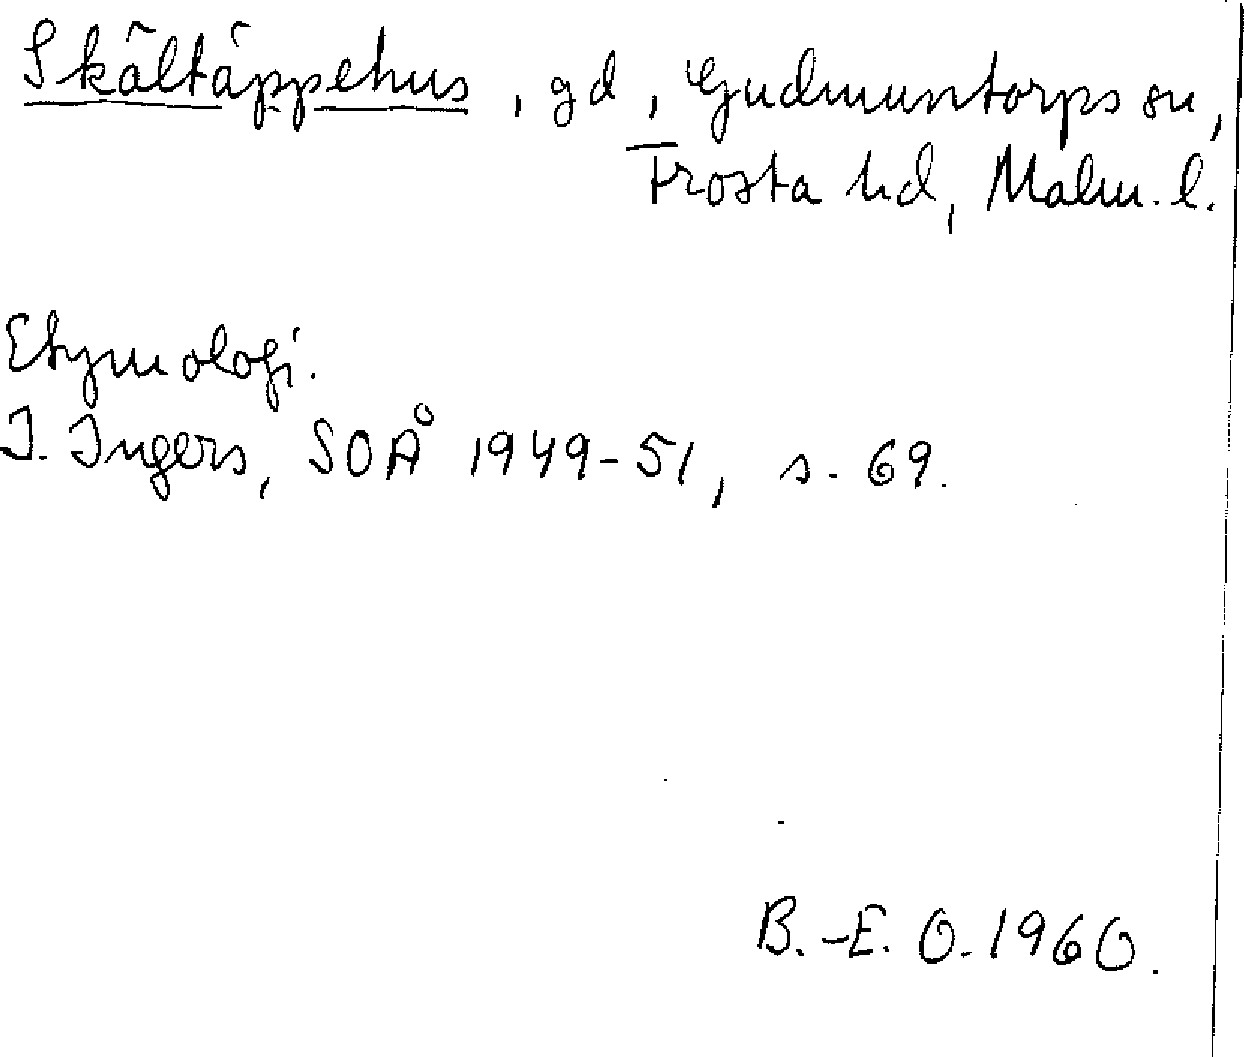 Skältäppehus, gd, Gudmuntorps sn,
Frosta hd, Malm. l.
Etymologi.
I. Ingers, SOÅ 1949-51, s. 69.
B.-E. O. 1960.